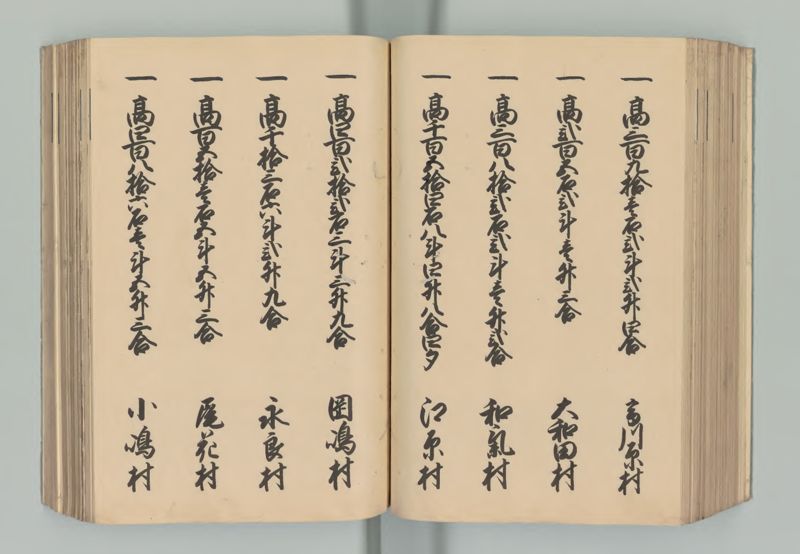 一 高三百九拾壱石弐斗弐升四合 高川原村
一 高弐百五石弐斗壱升三合 大和田村
一 高三百八拾弐石弐斗壱升弐合 和氣村
一 高千百五拾四石八斗四升八合四夕 江原村
一 高四百弐拾弐石三斗三升九合 岡嶋村
一 高千拾三石六斗弐升九合 永良村
一 高百五拾壱石五斗五升三合 尾花村
一 高四百八拾六石壱斗五升三合 小嶋村